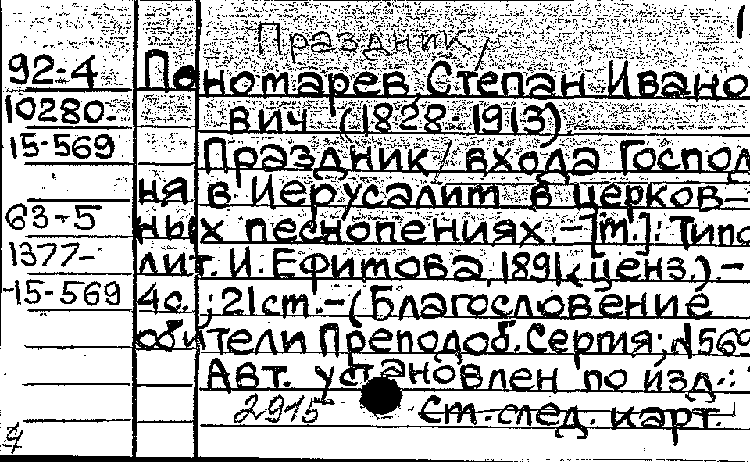 Праздник
92-4 Пономарев, Степан Ивано
10280- вич (1828-1913).
15-569 Праздник входа Господ
ня в Иерусалим в церков-
63-5 ных песнопениях.-[м.]: Типо
1377- лит. И. Ефимова, 1891 (ценз.).-
-15-569 4с.; 21см.-(Благословение
обители Преподоб. Сергия; №569
Авт. установлен по изд.:
2915 См. след. карт.